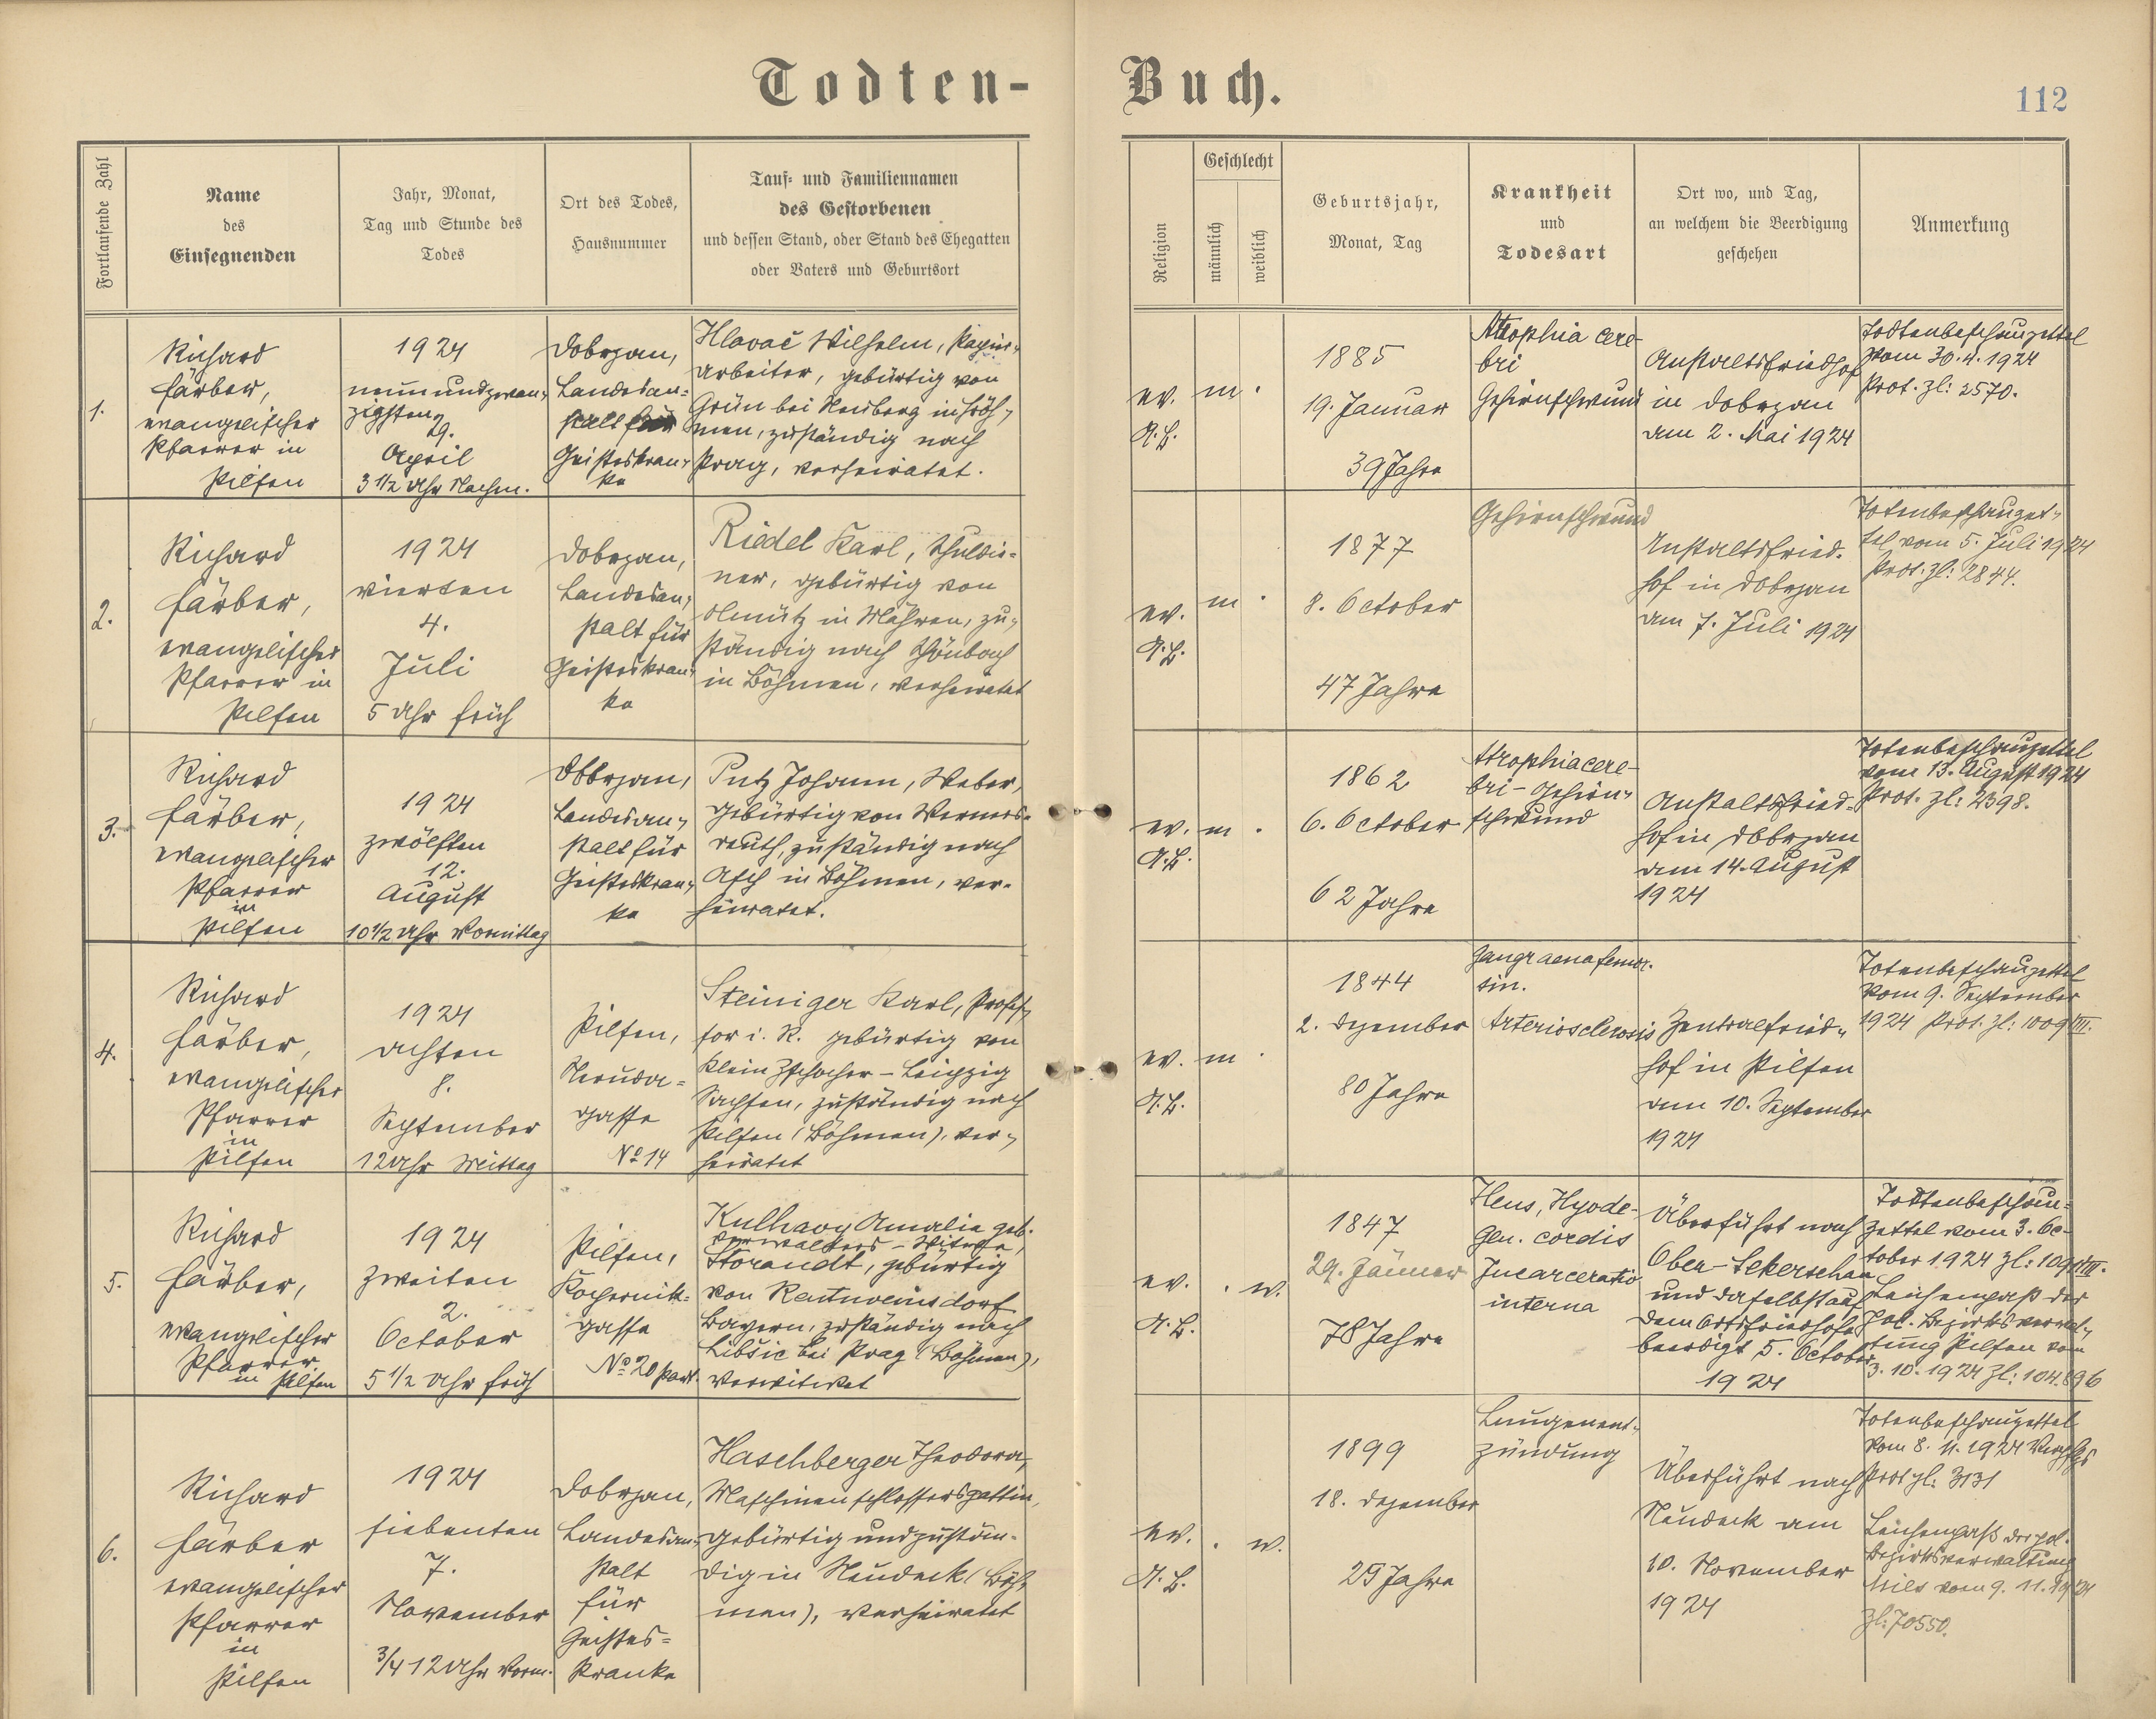 Todten-Buch.
112
Fortlaufende Zahl
Name
des
Einsegnenden
Jahr, Monat,
Tag und Stunde des
Todes
Ort des Todes,
Hausnummer
Tauf- und Familiennamen
des Gestorbenen
und dessen Stand, oder Stand des Ehegatten
oder Vaters und Geburtsort
Religion
Geschlecht
männlich
weiblich
Geburtsjahr,
Monat, Tag
Krankheit
und
Todesart
Ort wo, und Tag,
an welchem die Beerdigung
geschehen
Anmerkung
1.
Richard
Färber,
evangelischer
Pfarrer in
Pilsen
1924
neunundzwan-
zigsten
29.
April
3 1/2 Uhr Nachm.
Dobrzan,
Landesan-
stalt für
Geisteskran-
ke
Hlavač Wilhelm,
arbeiter, gebürtig von
Grün bei Neuberg in Böh-
men, zuständig nach
Prag, verheiratet.
ev.
A.B.
m.
1885
19. Januar
39 Jahre
Atrophia cere-
bri
Gehirnschwund
Anstaltsfriedhof
in Dobrzan
am 2. Mai 1924
Todtenbeschauzettel
vom 30.4.1924
Prot. Zl: 2570.
2.
Richard
Färber,
evangelischer
Pfarrer in
Pilsen
1924
vierten
4.
Juli
5 Uhr früh
Dobrzan,
Landesan-
stalt für
Geisteskran-
ke
Riedel Karl, Schuldie-
ner, gebürtig von
Olmütz in Mähren, zu-
ständig nach Schönbach
in Böhmen, verheiratet
ev.
A.B.
m.
1877
8. October
47 Jahre
Gehirnschwund
Anstaltsfried-
hof in Dobrzan
am 7. Juli 1924
Totenbeschauzet-
tel vom 5. Juli 1924
Prot. Zl: 2844.
3.
Richard
Färber,
evangelischer
Pfarrer
in
Pilsen
1924
zwölften
12.
August
10 1/2 Uhr Vormittag
Dobrzan,
Landesan-
stalt für
Geisteskran-
ke
Putz Johann, Weber,
gebürtig von Werners-
reuth, zuständig nach
Asch in Böhmen, ver-
heiratet.
ev.
A.B.
m.
1862
6. October
62 Jahre
Atrophia cere-
bri - Gehirn-
schwund
Anstaltsfried-
hof in Dobrzan
am 14. August
1924
Totenbeschauzettel
vom 13. August 1924
Prot. Zl: 2398.
4.
Richard
Färber,
evangelischer
Pfarrer
in
Pilsen
1924
achten
8.
September
12 Uhr Mittag
Pilsen,
Neruda-
gasse
No 14
Steiniger Karl, Profes-
sor i. R. gebürtig von
Klein Zschocher - Leipzig
Sachsen, zuständig nach
Pilsen (Böhmen), ver-
heiratet
ev.
A.B.
m.
1844
2. Dezember
80 Jahre
Gangraena femor.
sin.
Arteriosclerosis
Zentralfried-
hof in Pilsen
am 10. September
1924
Totenbeschauzettel
vom 9. September
1924 Prot. Zl: 1009/III.
5.
Richard
Färber,
evangelischer
Pfarrer
in Pilsen
1924
zweiten
2.
October
5 1/2 Uhr früh
Pilsen,
Kopernik-
gasse
No 20 part.
Kulhavy Amalie geb.
Verwalters - Witwe,
Storandt, gebürtig
von Rentweinsdorf
Bayern, zuständig nach
Libšic bei Prag (Böhmen),
verwitwet
ev.
A.B.
. w.
1847
29. Jänner
78 Jahre
Ileus, Myode-
gen. cordis
Incarceratio
interna
Überführt nach
Ober-Sekerschan
und daselbst auf
dem Ortsfriedhofe
beerdigt 5. October
1924
Todtenbeschau-
zettel vom 3. Oc-
tober 1924
Leichenpass der
Pol. Bezirksverwal-
tung Pilsen vom
3. 10. 1924 Zl: 104.896
6.
Richard
Färber
evangelischer
Pfarrer
in
Pilsen
1924
siebenten
7.
November
3/4 12 Uhr Vorm.
Dobrzan,
Landesan-
stalt
für
Geistes-
kranke
Haschberger Theodora,
Maschinenschlossersgattin,
gebürtig und zustän-
dig in Neudeck (Böh-
men), verheiratet
ev.
A.B.
. w.
1899
18. Dezember
25 Jahre
Lungenent-
zündung
Überführt nach
Neudeck am
10. November
1924
Totenbeschauzettel
vom 8. 11. 1924
Prot Zl: 3131
Leichenpass der pol.
Bezirksverwaltung
Mies vom 9. 11. 1924
Zl: 70550.